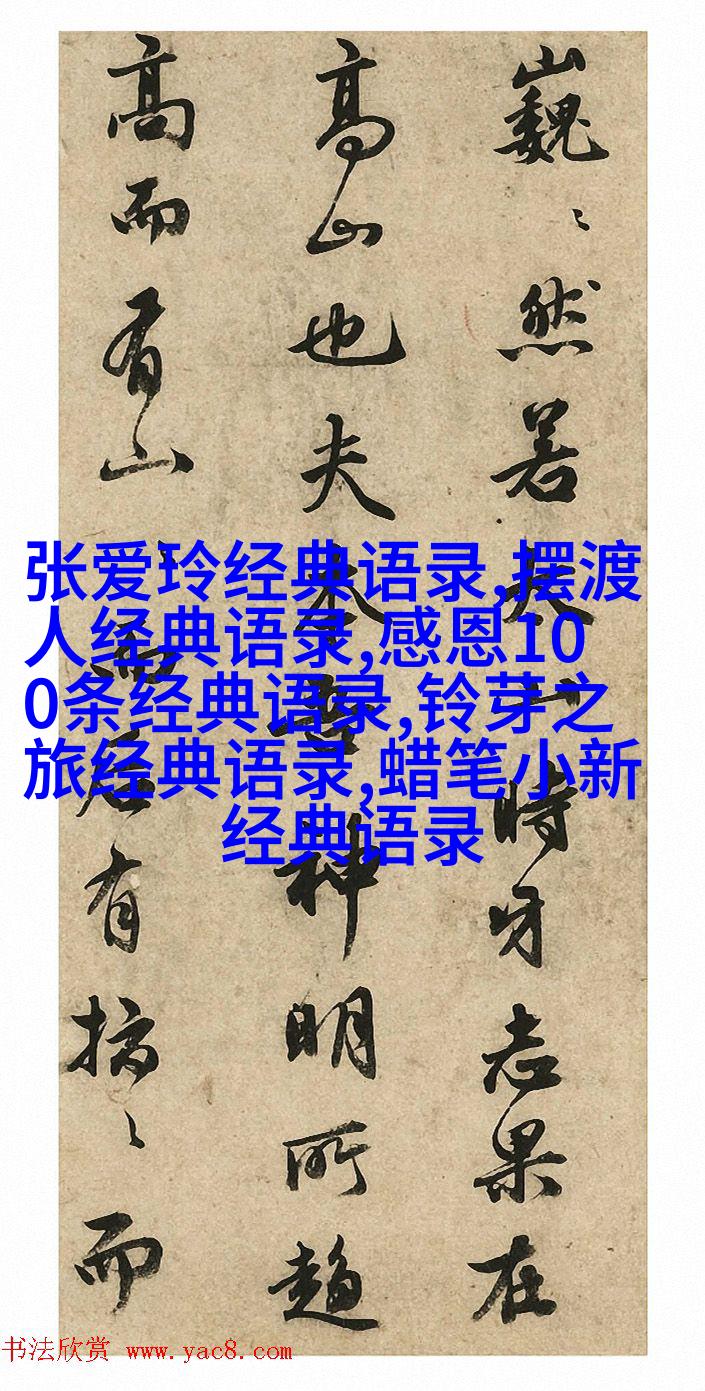 巍〻然若夫一時牙志果在
高山也夫本無神明所趨
高而有山山而后有摘〻而
张爱玲经典语录,摆渡
人经典语录,感恩10
0条经典语录,铃芽之
旅经典语录,蜡笔小新
经典语录
书法欣赏 www.yac8.com